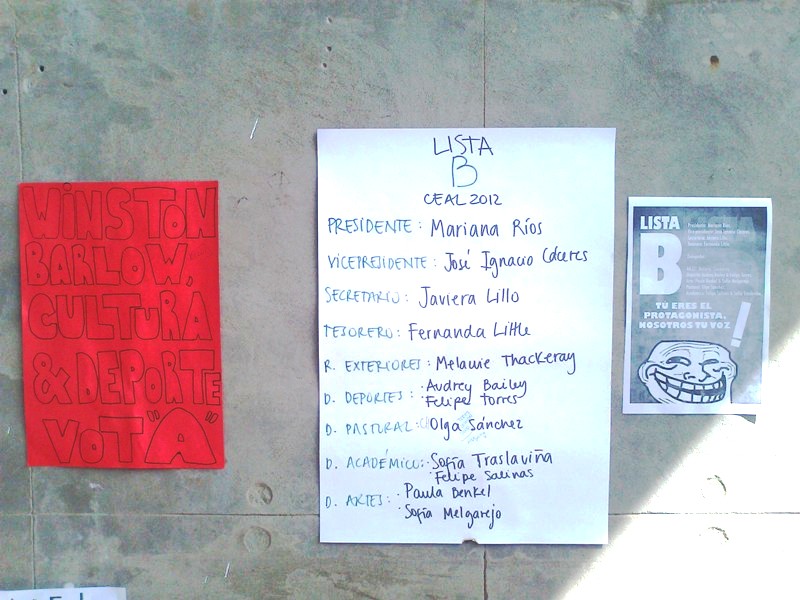 WINSTON
BARLOW,
CULTURA
& DEPORTE
VOT "A"
LISTA
B
CEAL 2012
PRESIDENTE: Mariana Ríos
VICEPRESIDENTE: José Ignacio Cáceres
SECRETARIO: Javiera Lillo
TESORERO: Fernanda Little
R. EXTERIORES: Melanie Thackeray
D. DEPORTES: ·Audrey Bailey
·Felipe Torres
D. PASTORAL: Olga Sánchez
D. ACADÉMICO: ·Sofía Traslaviña
·Felipe Salinas
D. ARTES: ·Paula Benkel
·Sofía Melgarejo
LISTA
B
TÚ ERES EL
PROTAGONISTA,
NOSOTROS TU VOZ!